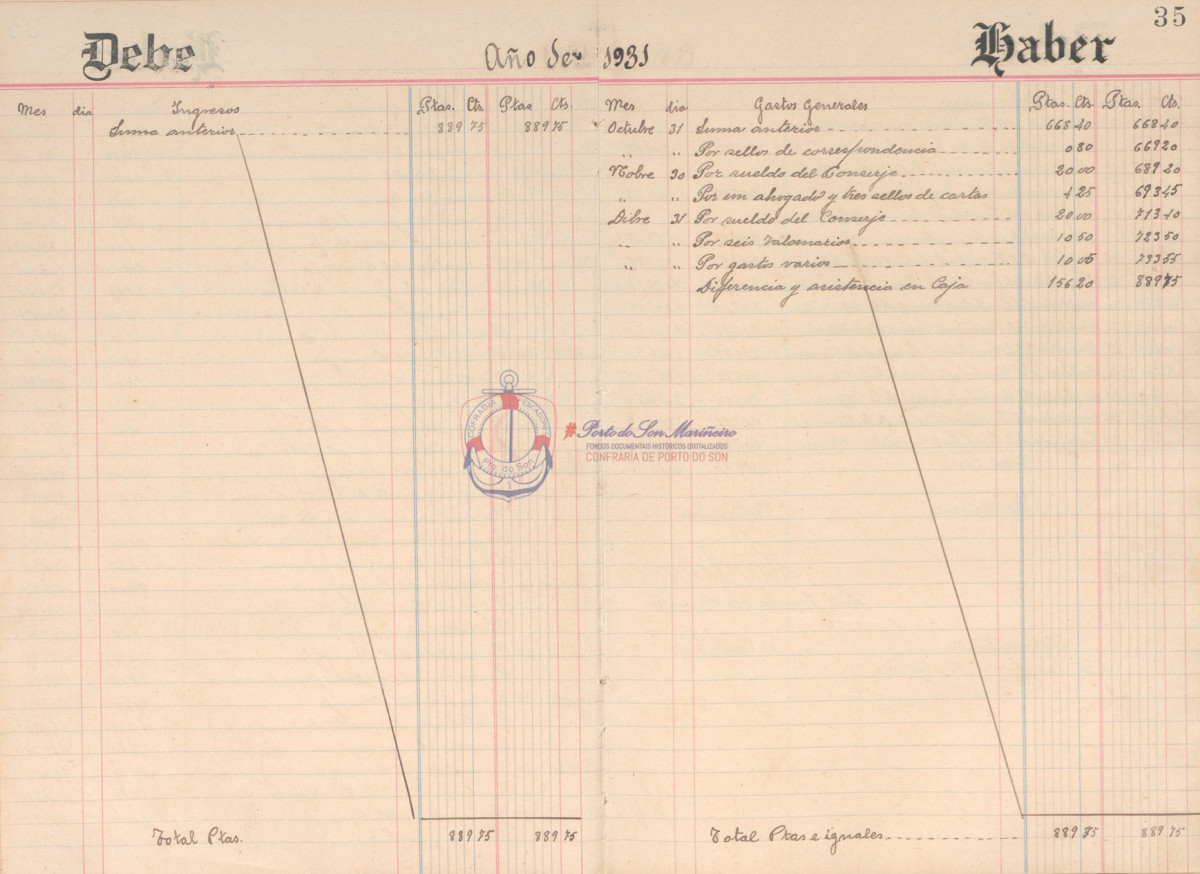 35
Debe Año de 1931 Haber
Mes dia Ingresos Ptas. Cts. Ptas Cts.
Suma anterior 889 75 889 75
Mes dia Gastos Generales Ptas. Cts. Ptas. Cts.
Octubre 31 Suma anterior 668 40 668 40
" " Por sellos de correspondencia 0 80 669 20
Nobre 30 Por sueldo del Conserje 20 00 689 20
" " Por un ahogado y tres sellos de cartas 4 25 693 45
Dibre 31 Por sueldo del Conserje 20 00 713 40
" " Por seis talonarios 10 50 723 50
" " Por gastos varios 10 05 733 55
Diferencia y asistencia en Caja 156 20 889 75
COFRADIA PESCADORES
Pto. do Son
#Porto do Son Mariñeiro
FONDOS DOCUMENTAIS HISTÓRICOS DIXITALIZADOS
CONFRARÍA DE PORTO DO SON
Total Ptas. 889 75 889 75
Total Ptas e iguales 889 75 889 75